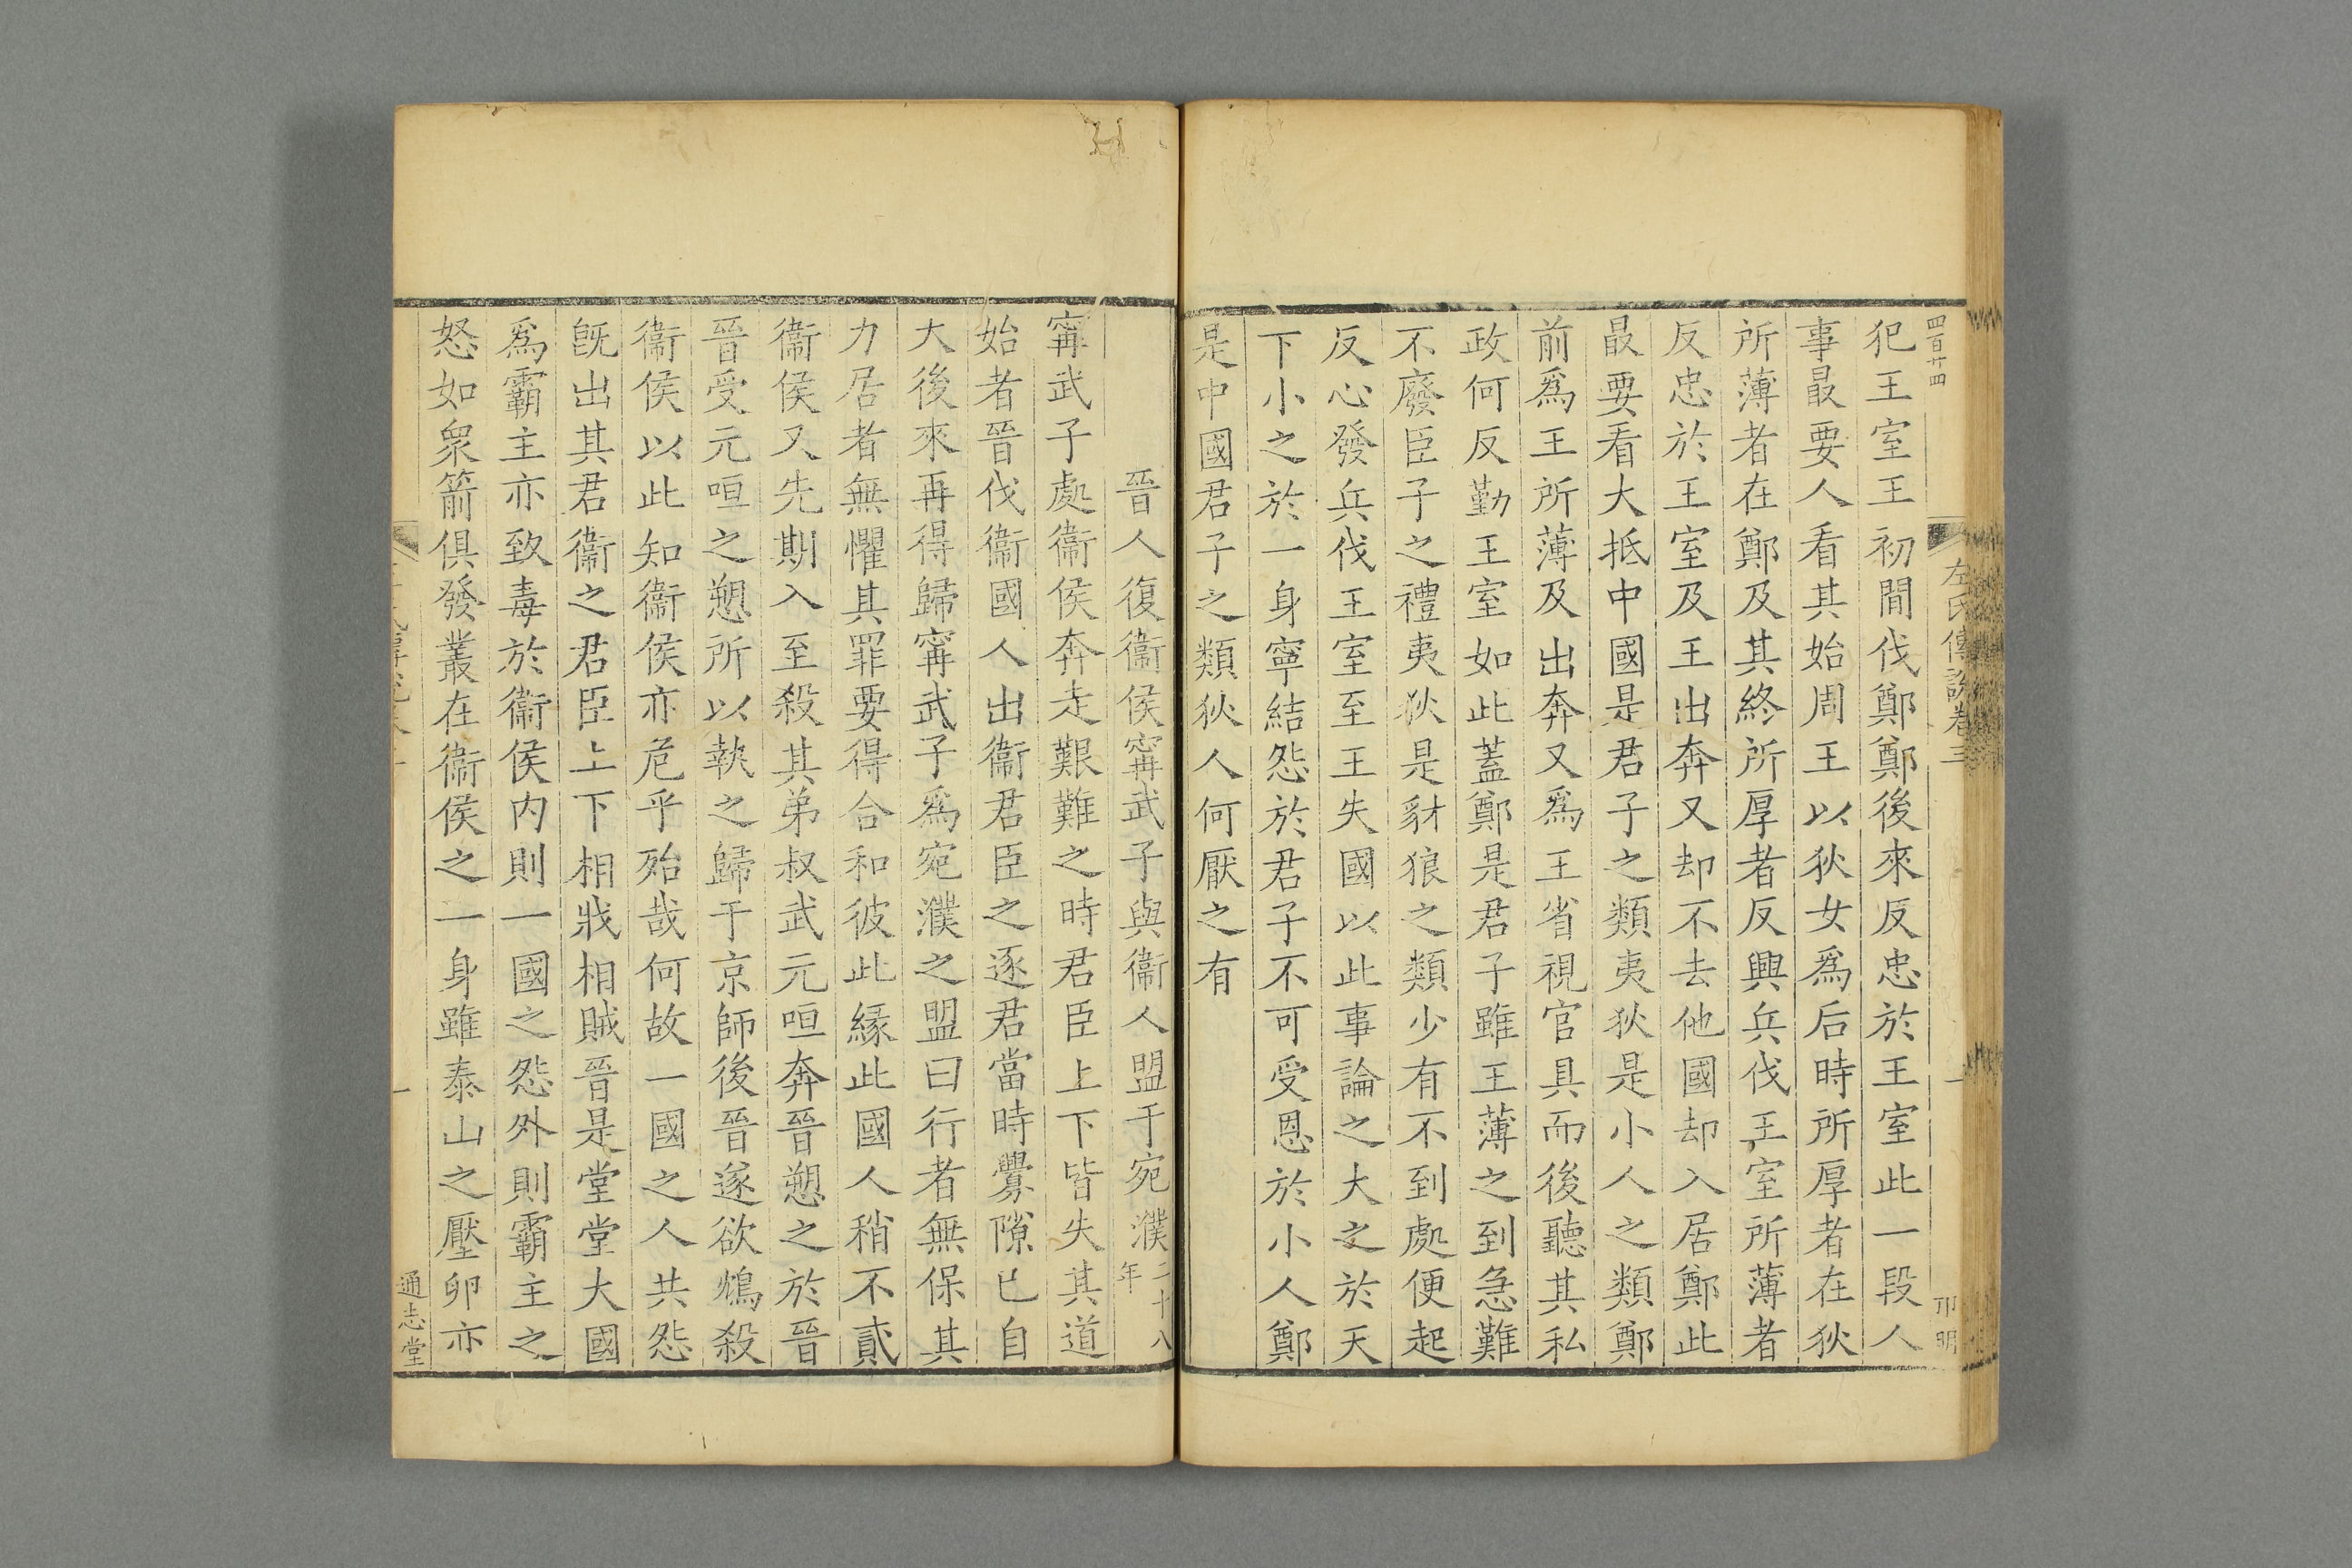 四百廿四
左氏傳說卷三
卭明
犯王室王初間伐鄭鄭後來反忠於王室此一段人
事最要人看其始周王以狄女爲后時所厚者在狄
所薄者在鄭及其終所厚者反興兵伐王室所薄者
反忠於王室及王出奔又却不去他國却入居鄭此
最要看大抵中國是君子之類夷狄是小人之類鄭
前爲王所薄及出奔又爲王省視官具而後聽其私
政何反勤王室如此蓋鄭是君子雖王薄之到急難
不廢臣子之禮夷狄是豺狼之類少有不到處便起
反心發兵伐王室至王失國以此事論之大之於天
下小之於一身寧結怨於君子不可受恩於小人鄭
是中國君子之類狄人何厭之有
晉人復衞侯甯武子與衞人盟于宛濮二十八年
甯武子處衞侯奔走艱難之時君臣上下皆失其道
始者晉伐衞國人出衞君臣之逐君當時釁隙已自
大後來再得歸甯武子爲宛濮之盟曰行者無保其
力居者無懼其罪要得合和彼此緣此國人稍不貳
衞侯又先期入至殺其弟叔武元咺奔晉愬之於晉
晉受元咺之愬所以執之歸于京師後晉遂欲鴆殺
衞侯以此知衞侯亦危乎殆哉何故一國之人共怨
旣出其君衞之君臣上下相戕相賊晉是堂堂大國
爲霸主亦致毒於衞侯内則一國之怨外則霸主之
怒如衆箭俱發叢在衞侯之一身雖泰山之壓卵亦
通志堂